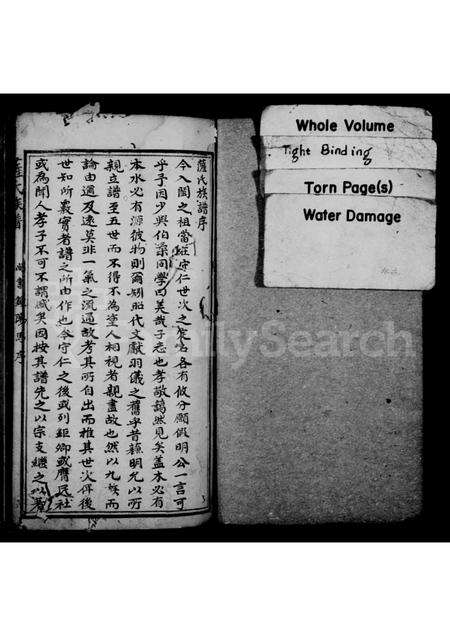 薩氏族譜序
今入閩之祖當斑守仁世次之
各有攸分願假明公一言可
乎予因少與伯榮同學曰美哉子志也孝敬藹然見矣蓋木必有
本水必有源彼物則爾矧昭代文獻羽儀之舊乎昔蘇明允以所
親立譜至五世而不得不為塗人相視者親盡故也然以九族而
論由邇及遠莫非一氣之流通故考其所自出而推其世次俾後
世知所
者譜之所由作也今守仁之後或列鉅卿或膺民社
或為聞人孝子不可不謂盛矣因按其譜先之以宗支繼之以
族譜
序
Whole Volume
Tight Binding
Torn Page(s)
Water Damage
DailySearch